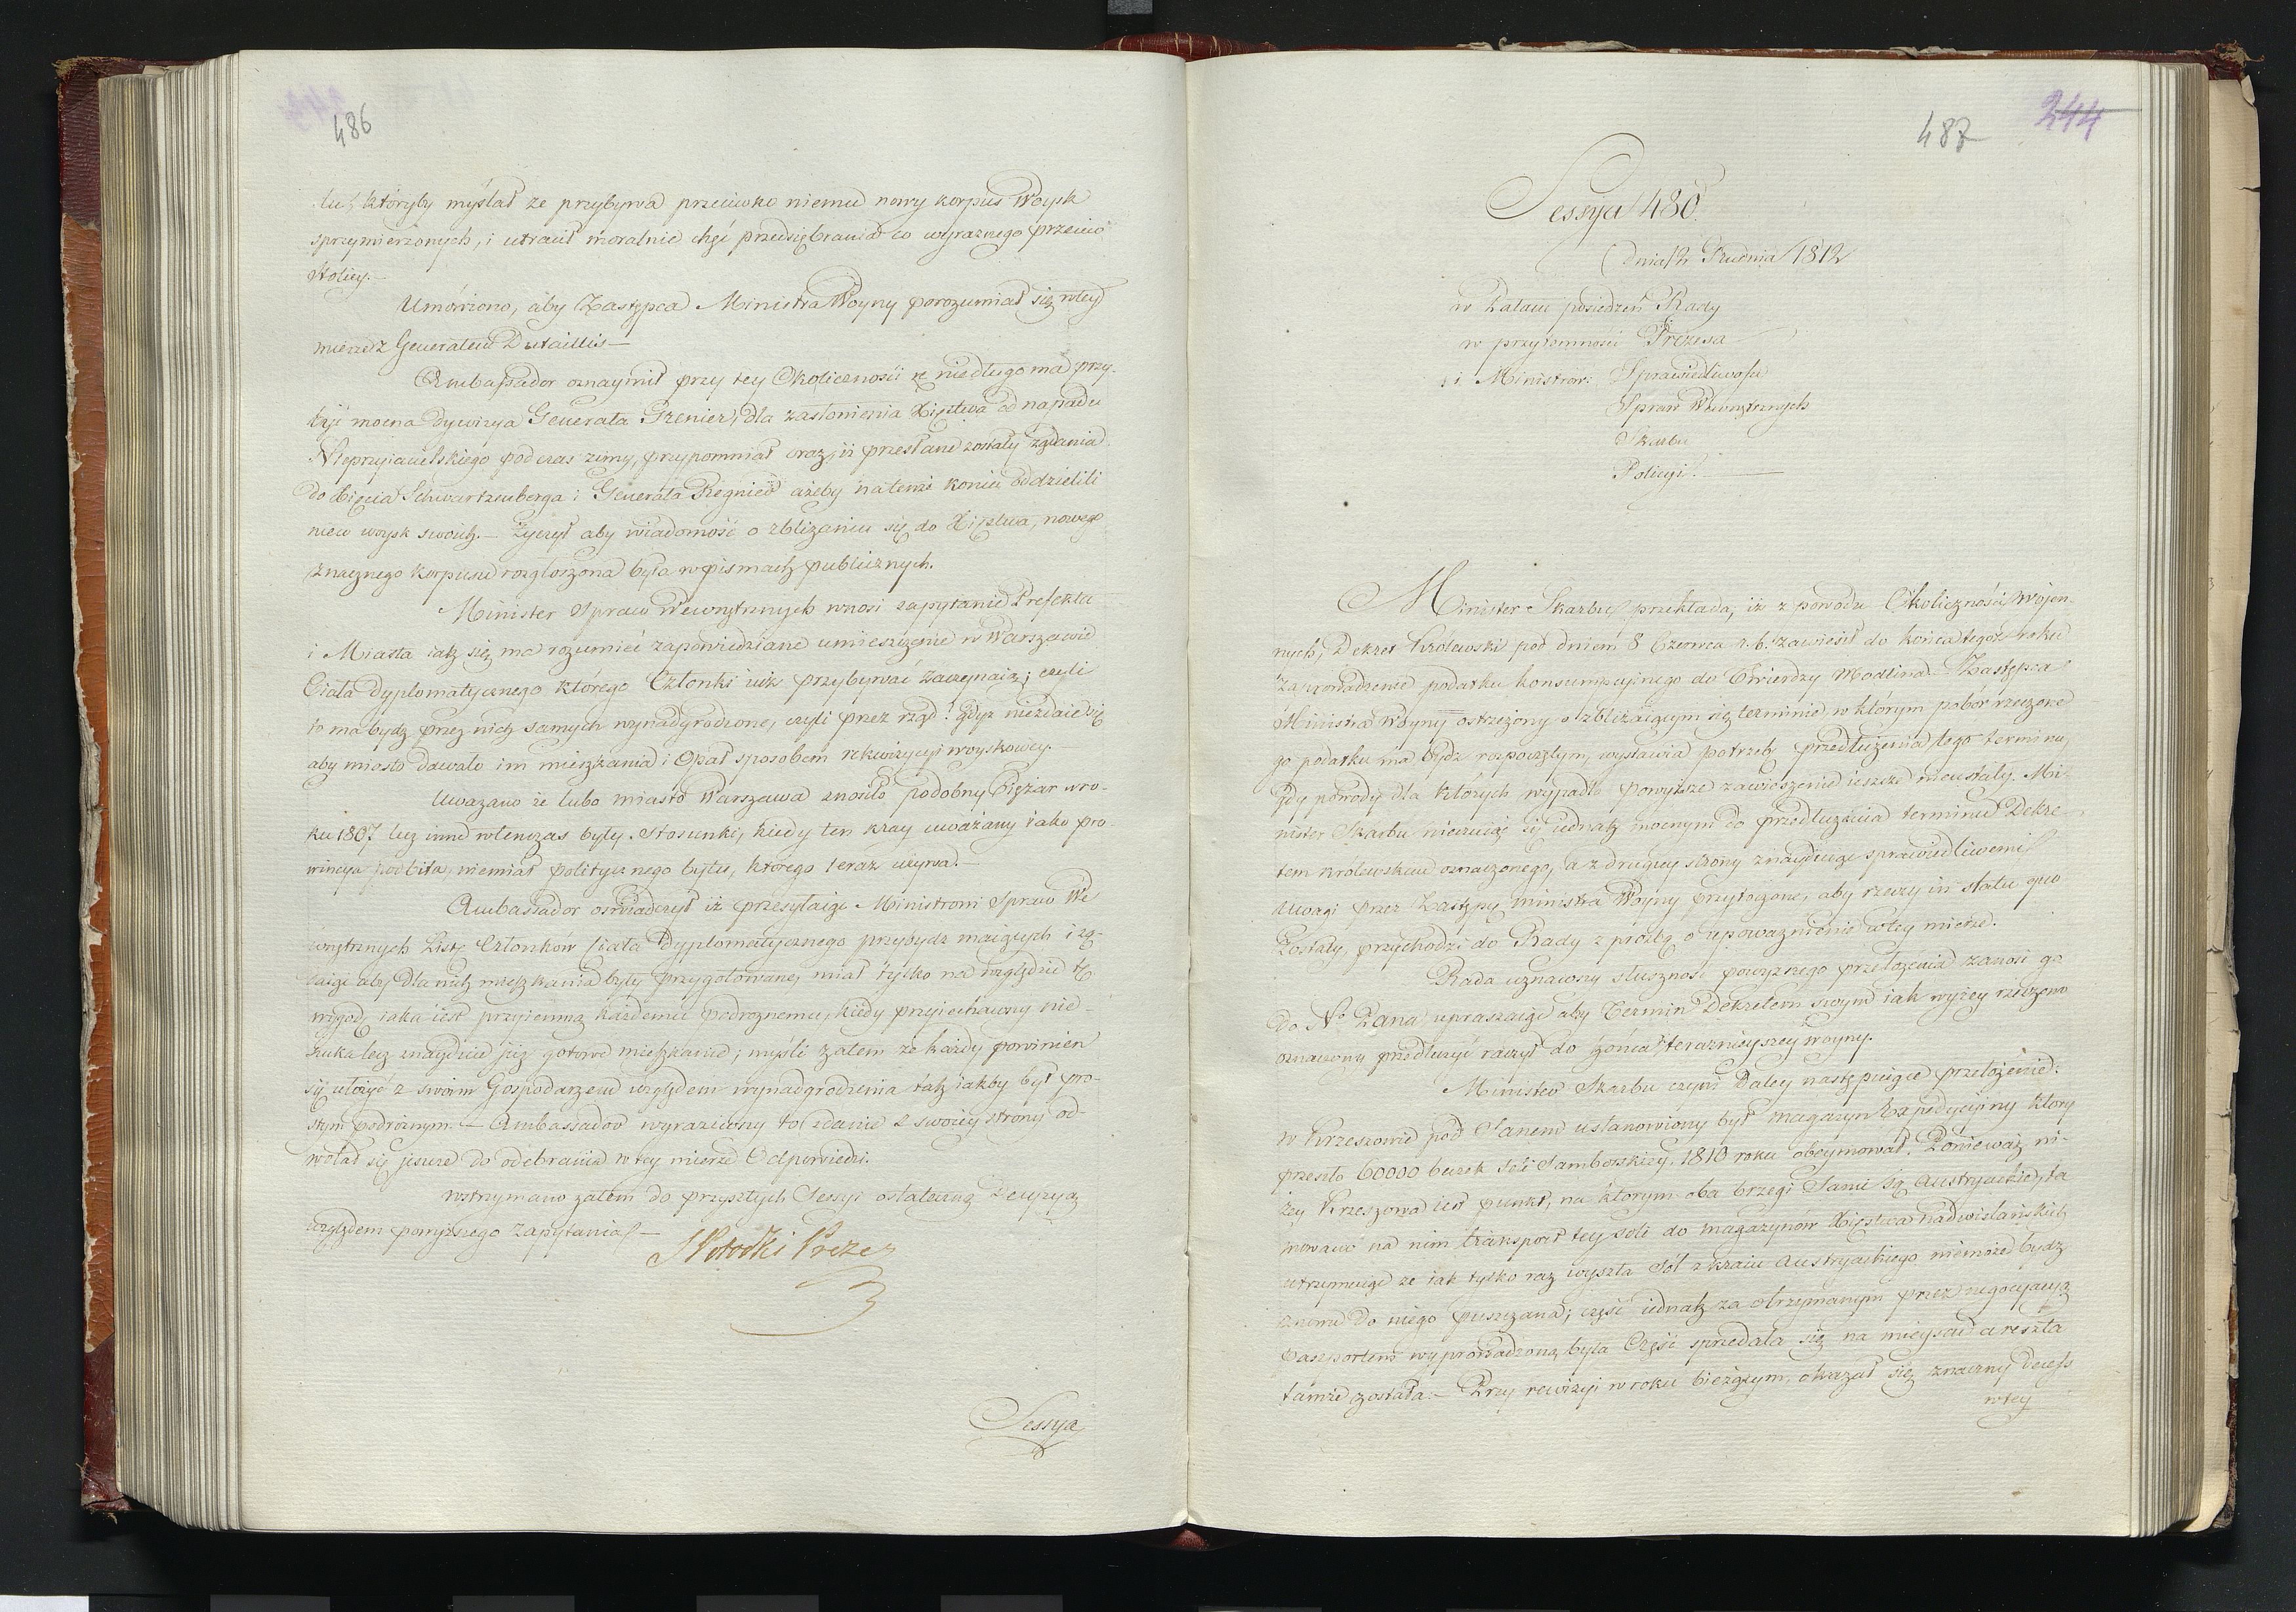 486
któryby myślał że przybywa przeciwko niemu nowy korpus Woysk
sprzymierzonych, i utracił moralnie chęć przedsiębrania co wyraznego przeciw
Stolicy.—
Umówiono, aby Zastępca Ministra Woyny porozumiał się wtey
mierze z Generałem Dutaillis—
Ambassador oznaymił przy tey Okoliczności że niedługo ma przy-
bydź mocna dywizya Generała Grenier, dla zasłonienia Xięstwa od napadu
Nieprzyiacielskiego podczas zimy, przypomniał oraz, iż przesłane zostały żądania
do Xięcia Schwartzenberga i Generała Regnier ażeby na tenże koniec oddzielili
nieco woysk swoich.— Życzył aby wiadomość o zbliżaniu się do Xięstwa, nowego
znacznego korpusu rozgłoszona była w pismach publicznych.
Minister Spraw Wewnętrznych wnosi zapytanie Prefekta
i Miasta iak się ma rozumieć zapowiedziane umieszczenie w Warszawie
Ciała dyplomatycznego którego Członki iuż przybywać zaczynaią; czyli
to ma bydź przez nich samych wynadgrodzone, czyli przez rząd? gdyż niezdaie się
aby miasto dawało im mieszkania i Opał sposobem rekwizycyi woyskowey.—
Uważano że lubo miasto Warszawa znosiło podobny Ciężar wro-
ku 1807 lecz inne wtenczas były Stosunki, kiedy ten kray uważany iako pro-
wincya podbita, niemiał politycznego bytu, którego teraz używa.—
Ambassador oświadczył iż przesyłaiąc Ministrowi Spraw We-
wnętrznych Listę Członków Ciała Dyplomatycznego przybydź maiących i żą-
daiąc aby dla nich mieszkania były przygotowane, miał tylko na względzie tę
wygodę iaka iest przyiemną każdemu podrożnemu, kiedy przyiechawszy nie
szuka lecz znayduie już gotowe mieszkanie; myśli zatem że każdy powinien
się ułożyć z swoim Gospodarzem względem wynadgrodzenia tak iakby był pro-
stym podróżnym.— Ambassador wyraziwszy to zdanie z swoiey strony od-
wołał się jeszcze do odebrania w tey mierze Odpowiedzi.
Wstrzymano zatem do przyszłych Sessyi ostateczną Decyzyą
względem powyższego zapytania.—
S Potocki Prezes
Sessya
487 244
Sessya 480.
Dnia 12 Grudnia 1812
w Pałacu posiedzeń Rady
w przytomności Prezesa
i Ministrów: Sprawiedliwości
Spraw Wewnętrznych
Skarbu
Policyi.—
Minister Skarbu przekłada, iż z powodu Okoliczności Wojen-
nych, Dekret Krolewski pod dniem 8 Czerwca r. b. zawiesił do końca tegoż roku
zaprowadzenie podatku konsumpcyinego do Twierdzy Modlina. Zastępca
Ministra Woyny ostrzeżony o zbliżaiącym się terminie, w którym pobór rzeczone-
go podatku ma bydź rozpoczętym, wystawia potrzebę przedłużenia tego terminu,
gdy powody dla których wypadło powyższe zawieszenie ieszcze nieustały. Mi-
nister Skarbu nieczuiąc się iednak mocnym do przedłużenia terminu Dekre-
tem Krolewskim oznaczonego, a z drugiey strony znayduiąc sprawiedliwemi
uwagi przez Zastępcę Ministra Woyny przytoczone, aby rzeczy in statu quo
zostały, przychodzi do Rady z prozbą o upoważnienie wtey mierze.
Rada uznawszy słuszność powyższego przełożenia zanosi go
do N. Pana upraszaiąc aby Termin Dekretem swym iak wyżey rzeczono
oznaczony przedłużyć raczył do końca teraznieyszey woyny.
Minister Skarbu czyni daley następuiące przełożenie:
w Krzeszowie pod Sanem ustanowiony był magazyn Expedycyiny ktory
przeszło 60000 beczek soli Samborskiey 1810 roku obeymował. Ponieważ ni-
żey Krzeszowa iest punkt, na którym oba brzegi Sanu są Austryackie, ta-
mowano na nim transport tey soli do magazynów Xięstwa nadwiślańskich
utrzymuiąc że iak tylko raz wyszła sól z kraiu Austryackiego niemoże bydź
znowu do niego puszczana; część iednak za otrzymanym przez negocyacyą
paszportem wyprowadzoną była Część sprzedała się na mieyscu a reszta
tamże została.— Przy rewizyi w roku bieżącym, okazał się znaczny decess
wtey